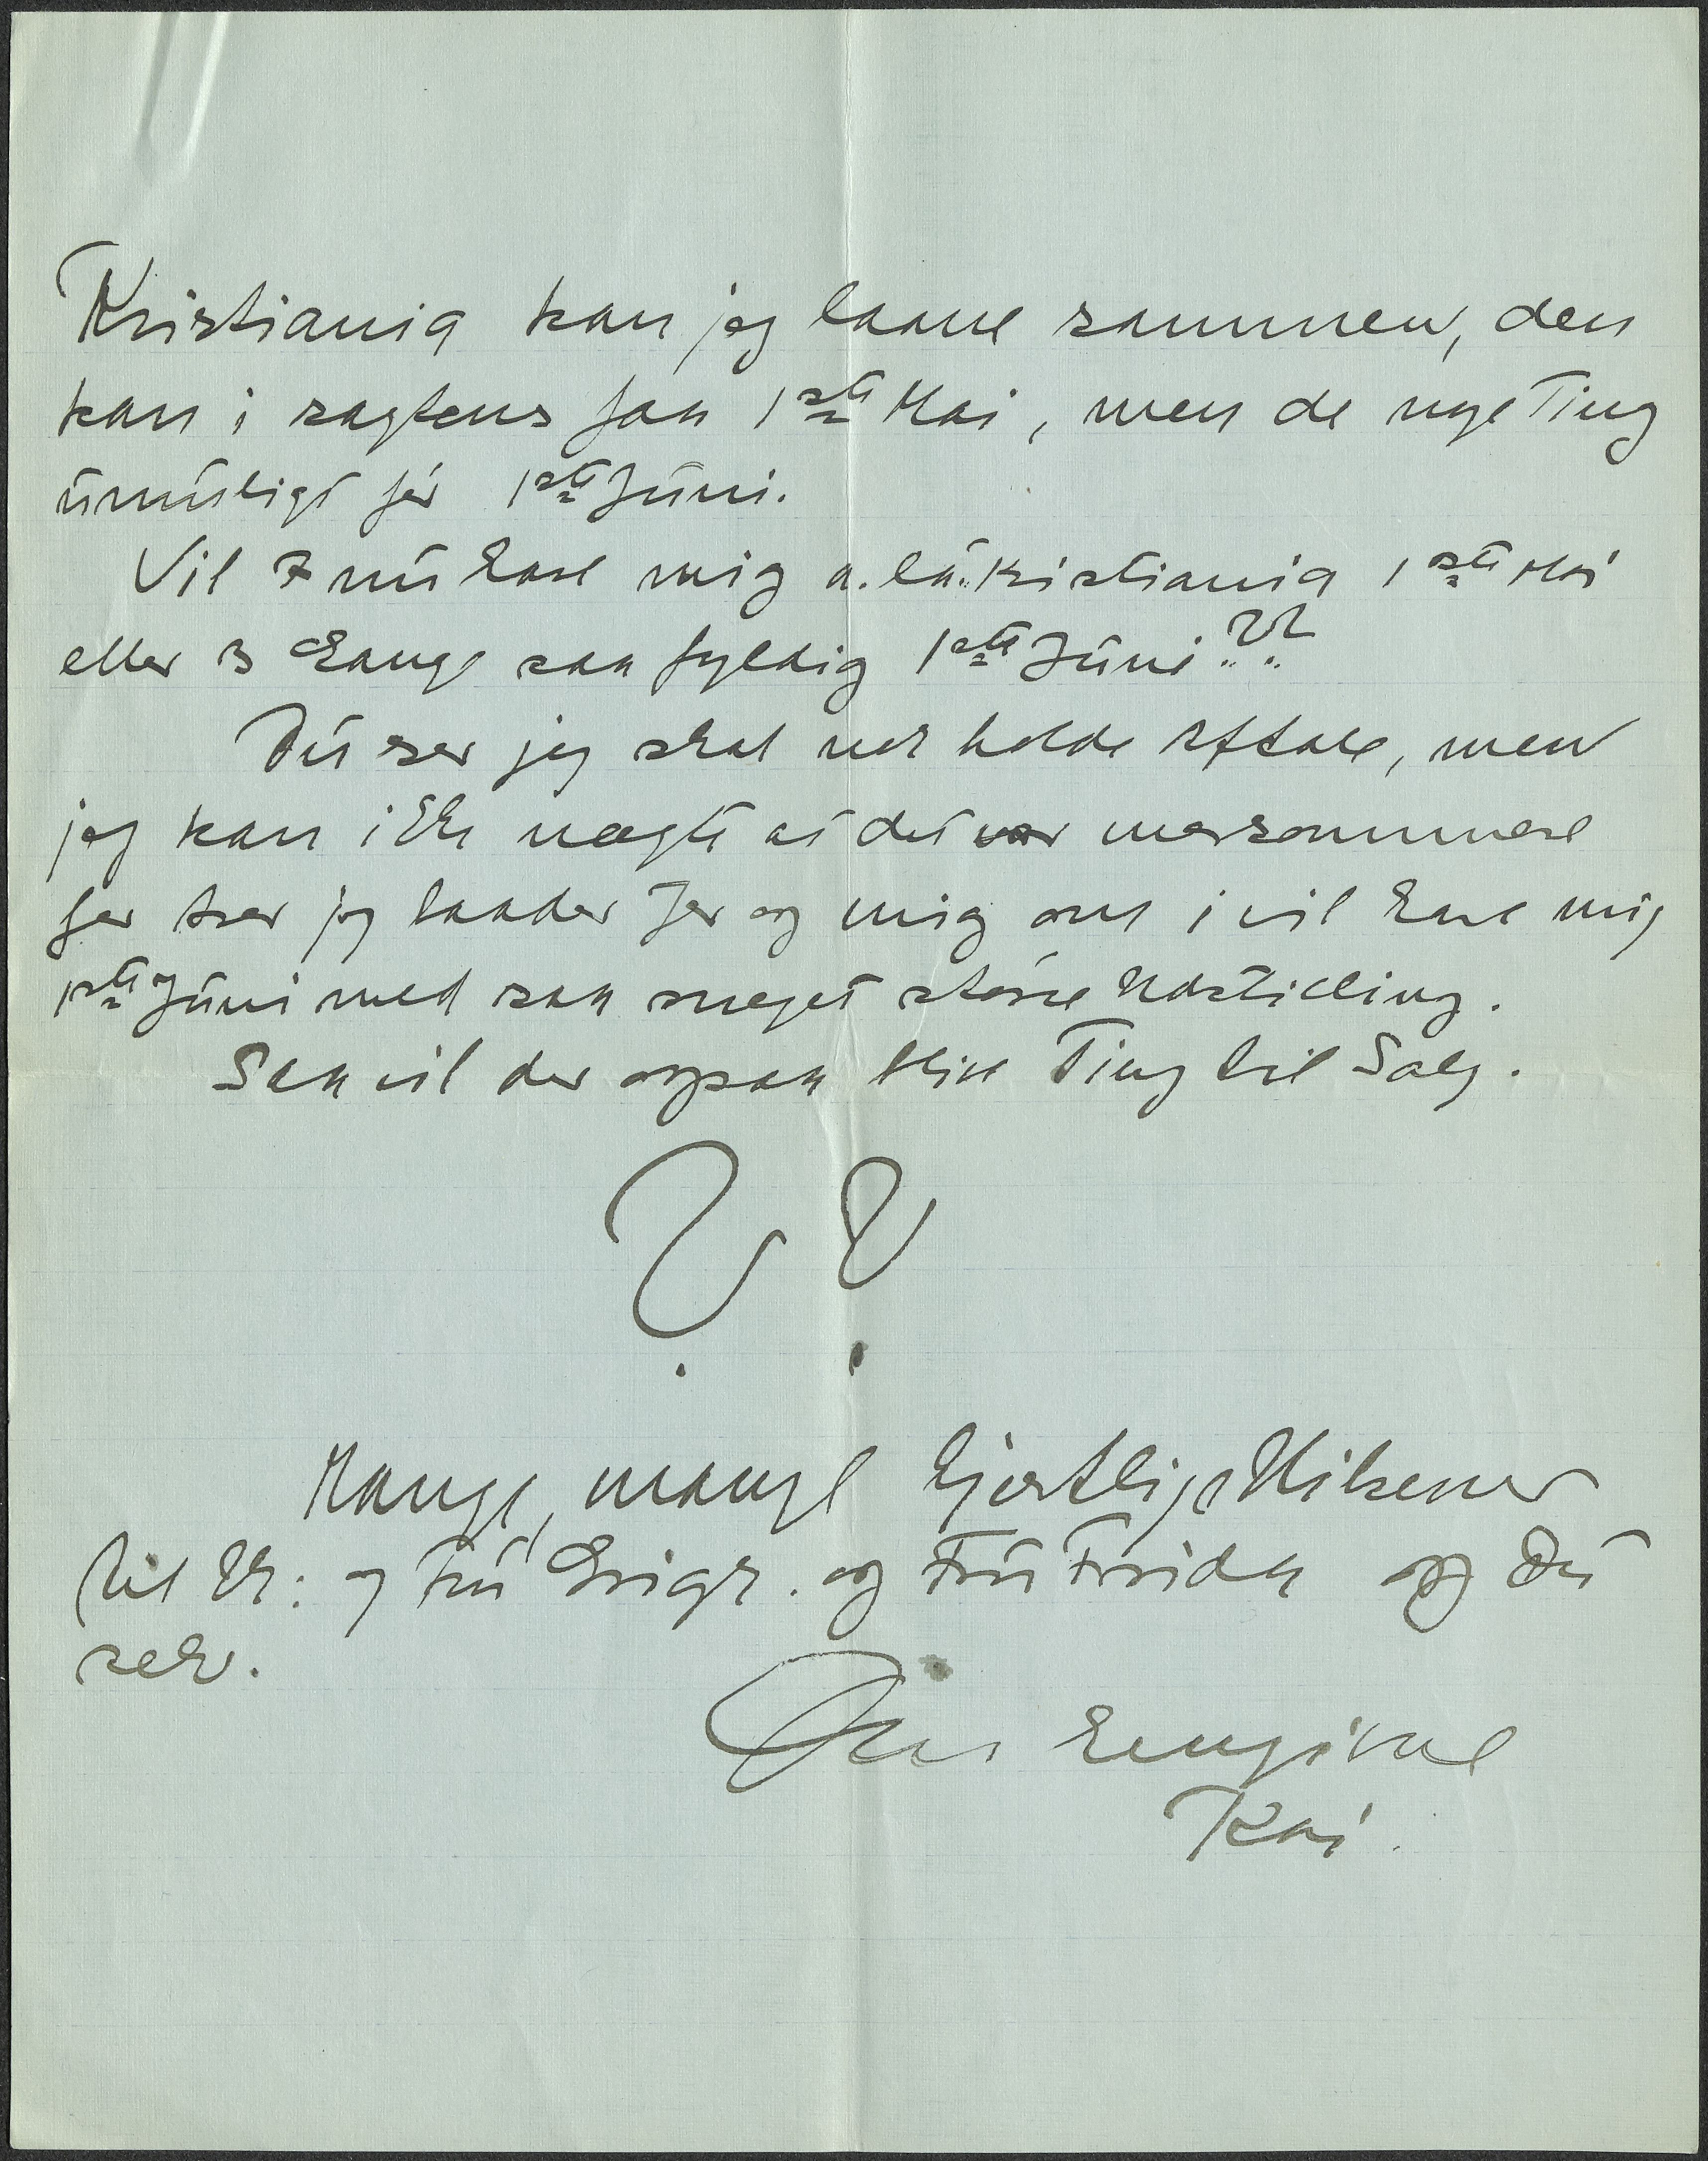 Kristiania kan jeg laane sammen, den
kan i sagtens faa 1ste Mai, men de nye Ting
umuligt før 1ste Juni.
Vil I nu have mig a. lá. Kristiania 1ste Mai
eller 3 Gange saa fyldig 1ste Juni??
Du ser jeg skal nok holde Aftale, men
jeg kan ikke nægte at det var morsommere
for baade Jer og mig om i vil have mig
1ste Juni med saa meget større Udstilling.
Saa vil der ogsaa blive Ting til Salg.
? ?
Mange, mange hjertlige Hilsener
til Hr: og Fru og Fru Frida og Du
selv.
Din hengivne
Kai.